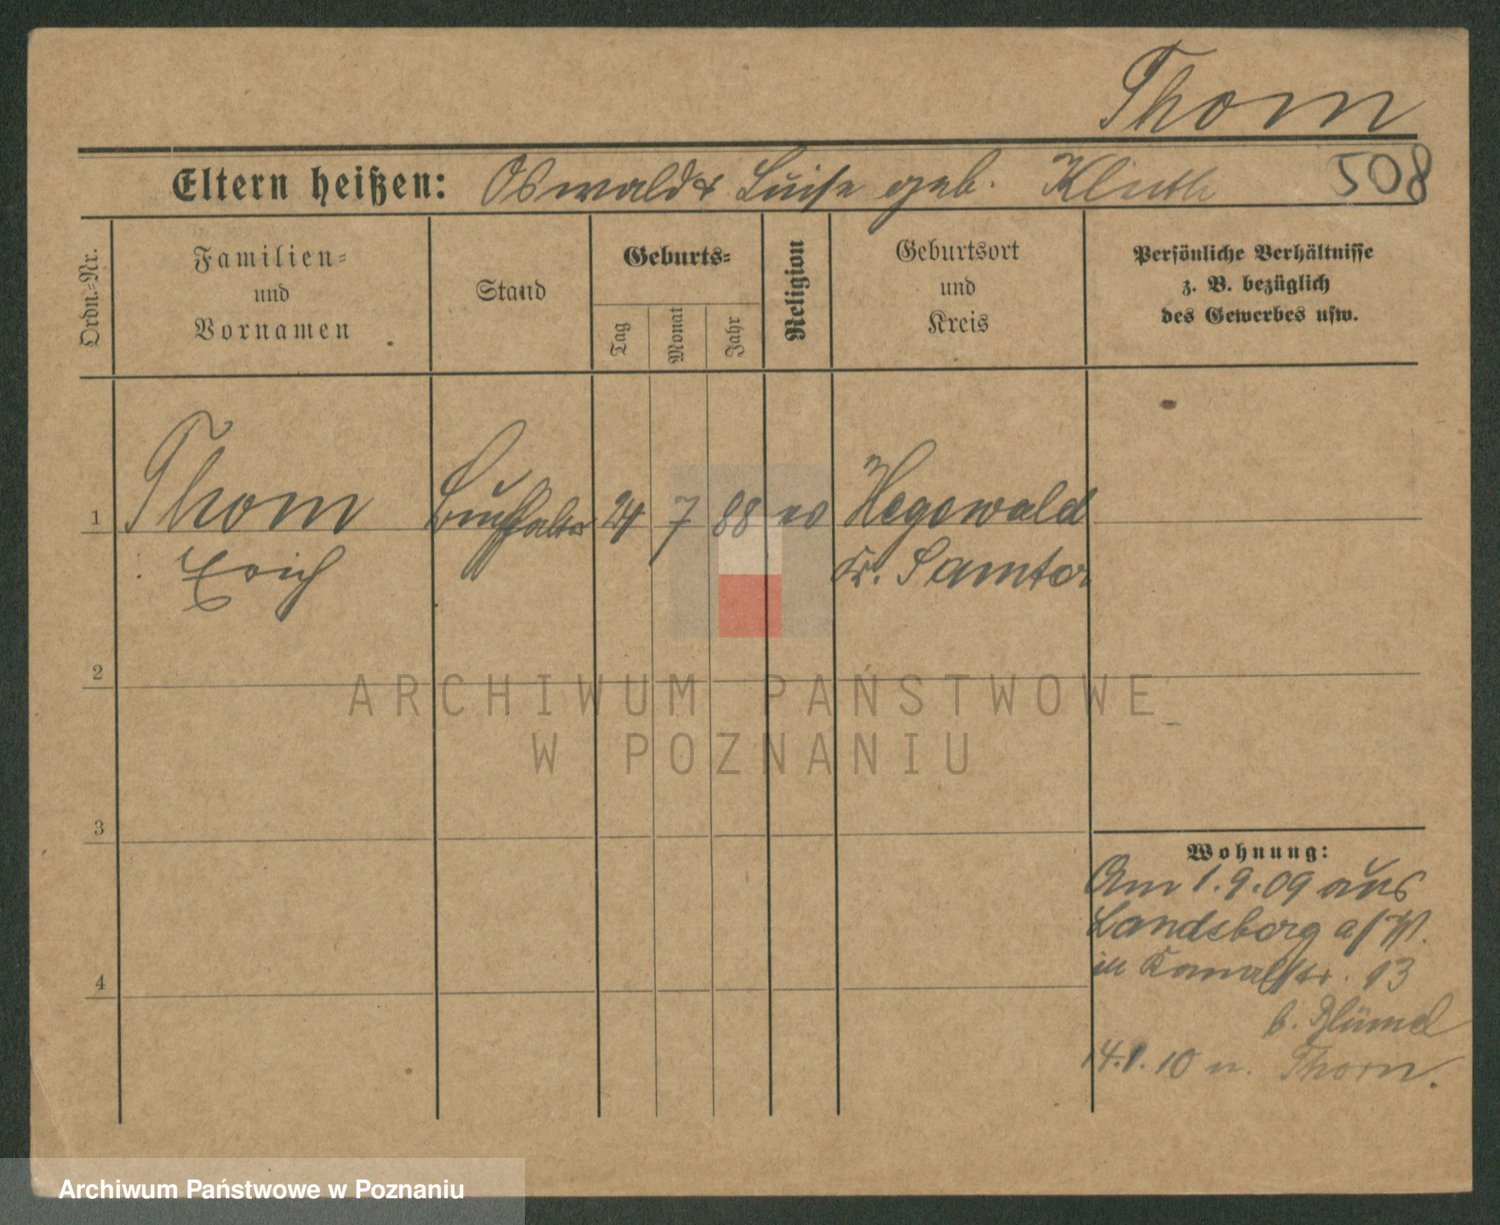 Thom
Eltern heißen: Oswald & Luise geb. Kluth
508
Ordn.-Nr.
Familien-
und
Vornamen
Stand
Geburts-
Tag
Monat
Jahr
Religion
Geburtsort
und
Kreis
Persönliche Verhältnisse
z. B. bezüglich
des Gewerbes usw.
1
Thom
Erich
Buchhalter
24
7
88
ev
Hegewald
Kr. Samter
2
ARCHIWUM PAŃSTWOWE
W POZNANIU
3
4
Wohnung:
Am 1.9.09 aus
Landsberg a/W.
in Kanalstr. 13
b. Blümel
14.1.10 n. Thorn.
Archiwum Państwowe w Poznaniu